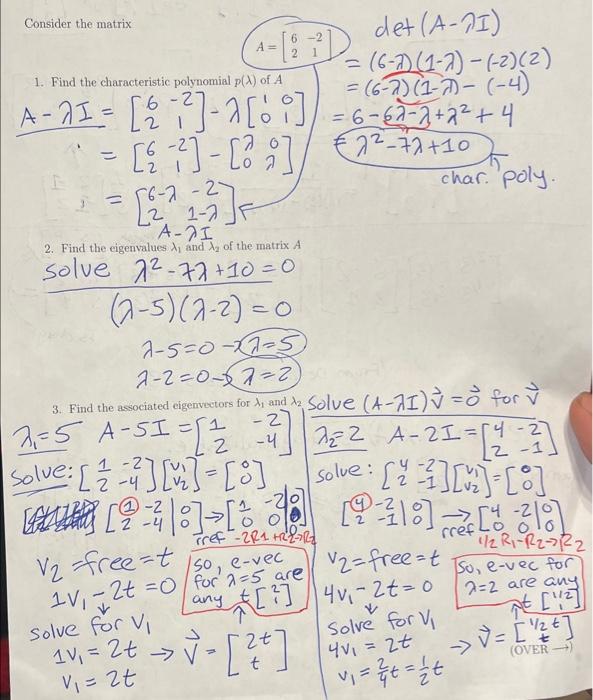 Consider the matrix
A = [6 -2; 2 1]
det(A-λI)
= (6-λ)(1-λ) - (-2)(2)
= (6-λ)(1-λ) - (-4)
= 6-6λ-λ+λ²+4
= λ²-7λ+10
char. poly.
1. Find the characteristic polynomial p(λ) of A
A-λI = [6 -2; 2 1] - λ[1 0; 0 1]
= [6 -2; 2 1] - [λ 0; 0 λ]
= [6-λ -2; 2 1-λ]
A-λI
2. Find the eigenvalues λ₁ and λ₂ of the matrix A
solve λ²-7λ+10=0
(λ-5)(λ-2)=0
λ-5=0→λ=5
λ-2=0→λ=2
3. Find the associated eigenvectors for λ₁ and λ₂
Solve (A-λI)v⃗ = 0⃗ for v⃗
λ₁=5 A-5I = [1 -2; 2 -4]
Solve: [1 -2; 2 -4][v₁; v₂] = [0; 0]
[1 -2 | 0; 2 -4 | 0] → [1 -2 | 0; 0 0 | 0]
rref -2R1+R2→R2
v₂=free=t
1v₁-2t=0
solve for v₁
1v₁=2t → v⃗ = [2t; t]
v₁=2t
so, e-vec
for λ=5 are
any t[2; 1]
λ₂=2 A-2I = [4 -2; 2 -1]
solve: [4 -2; 2 -1][v₁; v₂] = [0; 0]
[4 -2 | 0; 2 -1 | 0] → [4 -2 | 0; 0 0 | 0]
rref 1/2 R₁-R₂→R2
v₂=free=t
4v₁-2t=0
solve for v₁
4v₁=2t
v₁=2/4t=1/2t
→ v⃗ = [1/2t; t]
so, e-vec for
λ=2 are any
t[1/2; 1]
(OVER →)